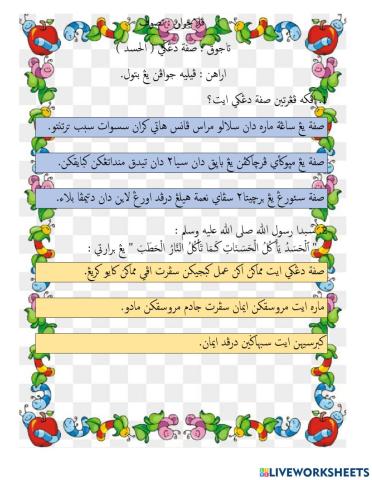 ڤلاجرن : تصوف
تاجوق : صفة دڠكي ( الحسد )
اراهن : ڤيليه جواڤن يڠ بتول.
1. اڤكه ڤڠرتين صفة دڠكي ايت؟
صفة يڠ ساڠة ماره دان سلالو مراس ڤانس هاتي كران سسوات سبب ترتنتو.
صفة يڠ مڽوكاٴي ڤرچاكڤن يڠ باڽق دان سيا٢ دان تيدق منداتڠكن كباٴيقكن.
صفة سئورڠ يڠ برچيتا٢ سڤاي نعمة هيلڠ درڤد اورڠ لاين دان دتيمڤا بلاء.
2. سبدا رسول الله صلى الله عليه وسلم :
" اَلْحَسَدُ يَأْكُلُ الْحَسَنَاتِ كَمَا تَأْكُلُ النَّارُ الْحَطَبَ " يڠ برارتي :
صفة دڠكي ايت مماكن اكن عمل كبجيكن سڤرت اڤي مماكن كايو كريڠ.
ماره ايت مروسقكن ايمان سڤرت جادم مروسقكن مادو.
كبرسيهن ايت سبهاڬين درڤد ايمان.
LIVEWORKSHEETS